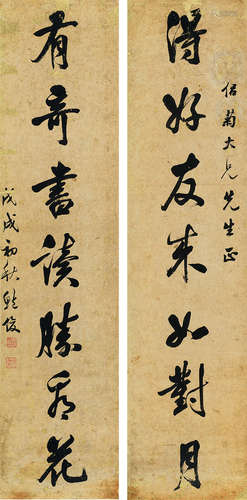 得好友来如對月
菊大兄先生正
有奇書讀勝看花
戊戌初秋